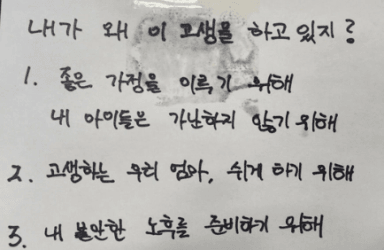 내가 왜 이 고생을 하고 있지?
1. 좋은 가정을 이르기 위해
내 아이들은 가난하지 않기 위해
2. 고생하는 우리 엄마, 쉬게 하기 위해
3. 내 불안한 노후를 준비하기 위해